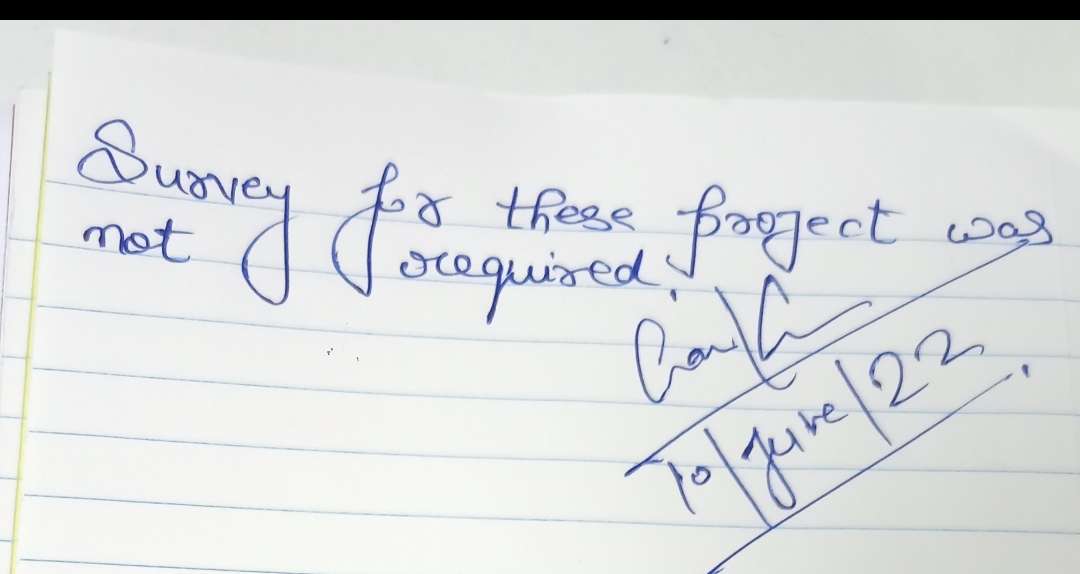 Survey for these project was
not required.
10/June/22